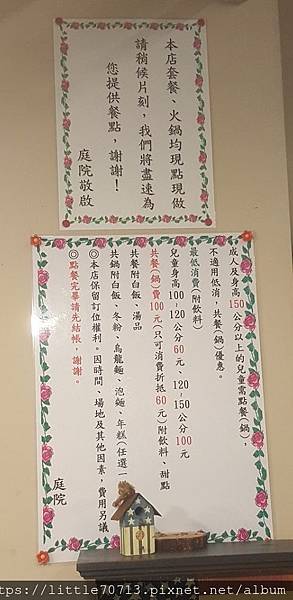 本店套餐、火鍋均現點現做
請稍候片刻，我們將盡速為
您提供餐點，謝謝！
庭院敬啟
成人及身高150公分以上的兒童需點餐(鍋)，
不適用低消，共餐(鍋)優惠。
最低消費(附飲料)
兒童身高100~120公分60元、120~150公分100元
共餐(鍋)費100元(只可消費折抵60元)附飲料、甜點
共餐附白飯、湯品
共鍋附白飯、冬粉、烏龍麵、泡麵、年糕(任選一
◎本店保留訂位權利。因時間、場地及其他因素，費用另議
◎點餐完畢請先結帳。謝謝。
庭院
ps://little70713.pixnet.net/album